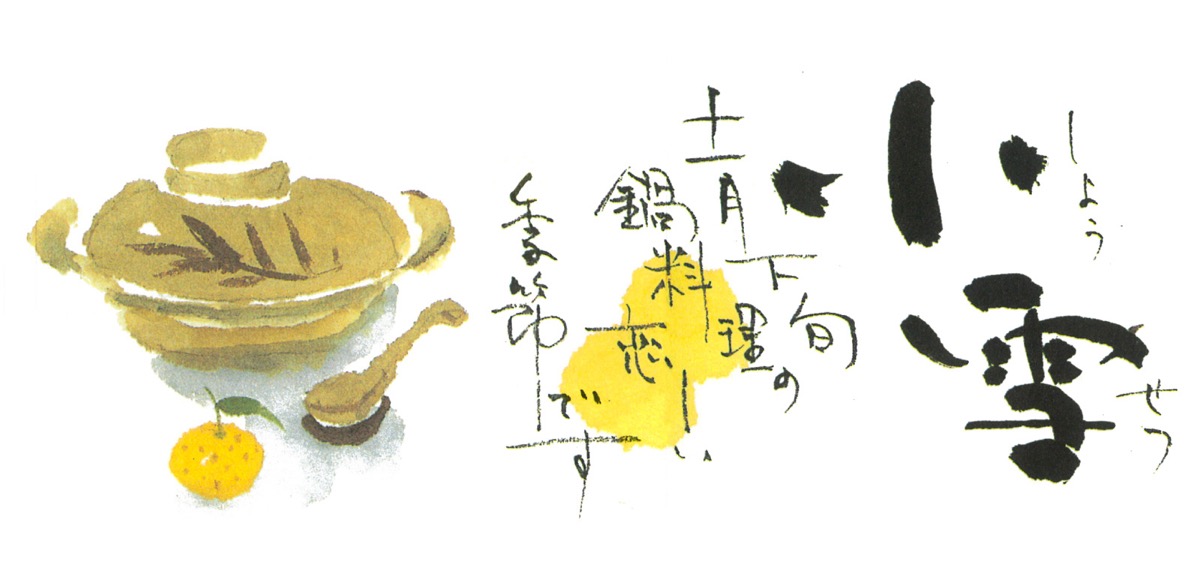 小雪
しょうせつ
十一月下旬
鍋料理の
恋しい
季節です